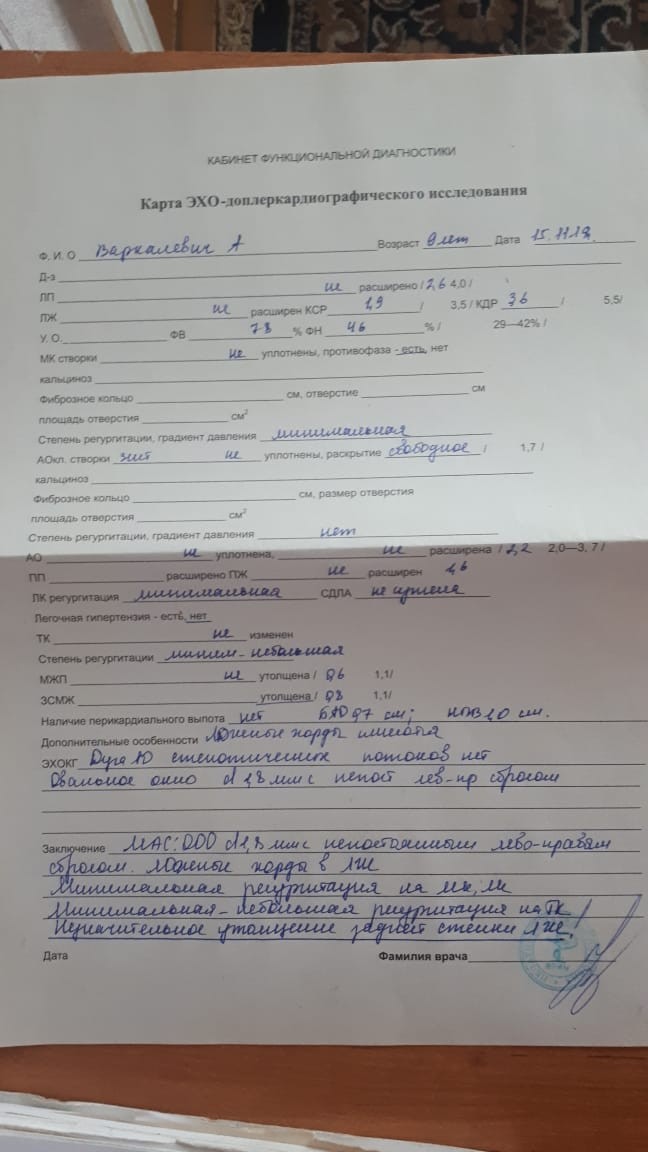 КАБИНЕТ ФУНКЦИОНАЛЬНОЙ ДИАГНОСТИКИ
Карта ЭХО-доплеркардиографического исследования
Ф. И. О Варкалевич А Возраст 9 лет Дата 15.11.19.
Д-з
ЛП не расширено / 2,6 4,0 /
ЛЖ не расширен КСР 1,9 / 3,5 / КДР 3,6 / 5,5/
У. О. ФВ 78 % ФН 46 % / 29—42% /
МК створки не уплотнены, противофаза - есть, нет
кальциноз
Фиброзное кольцо см, отверстие см
площадь отверстия см²
Степень регургитации, градиент давления минимальная
АОкл. створки не уплотнены, раскрытие свободное / 1,7 /
кальциноз
Фиброзное кольцо см, размер отверстия
площадь отверстия см²
Степень регургитации, градиент давления нет
АО не уплотнена, не расширена / 2,2 2,0—3, 7 /
ПП расширено ПЖ не расширен 1,6
ЛК регургитация минимальная СДЛА не
Легочная гипертензия - есть, нет
ТК не изменен
Степень регургитации миним-небольшая
МЖП не утолщена / 0,6 1,1/
ЗСМЖ утолщена / 0,8 1,1/
Наличие перикардиального выпота нет БАО 0,7 см; НПВ 1,0 см.
Дополнительные особенности Ложные хорды
ЭХОКГ Дуга АО стенотических потоков нет
Овальное окно d 1,8 мм с непост лев-пр сбросом
Заключение МАС: ООО d 1,8 мм с непостоянным лево-правым
сбросом. Ложные хорды в ЛЖ
Минимальная регургитация на МК, ЛК
Минимальная-небольшая регургитация на ТК
Незначительное утолщение задней стенки ЛЖ
Дата Фамилия врача